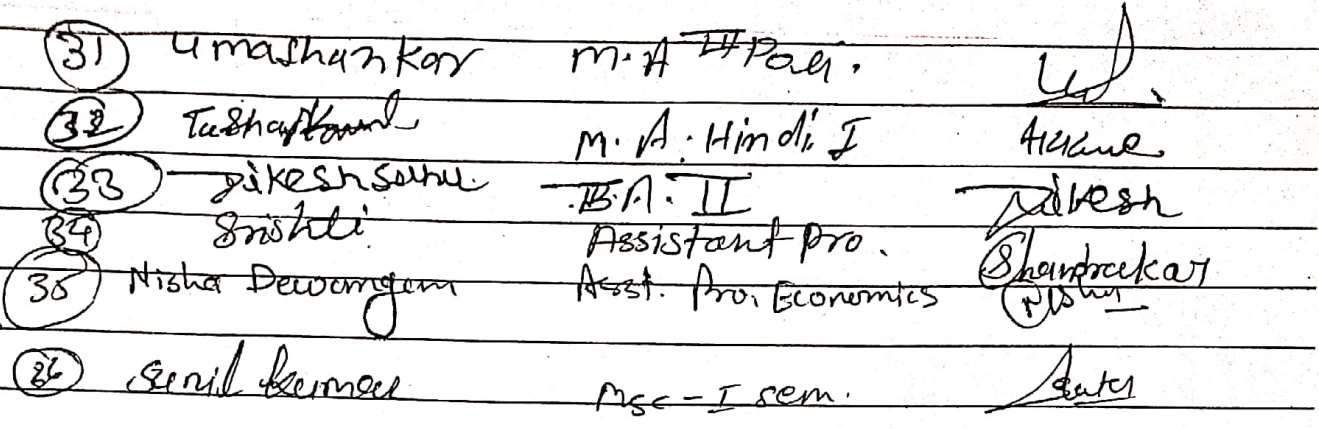 31 Umashankar M.A III Pol.
32 M.A. Hindi I
33 Dikesh Sahu B.A. II Dikesh
34 Srishti Assistant pro. Shandrakar
35 Nisha Dewangan Asst. Pro. Economics Nisha
36 Sunil kumar Msc - I sem.